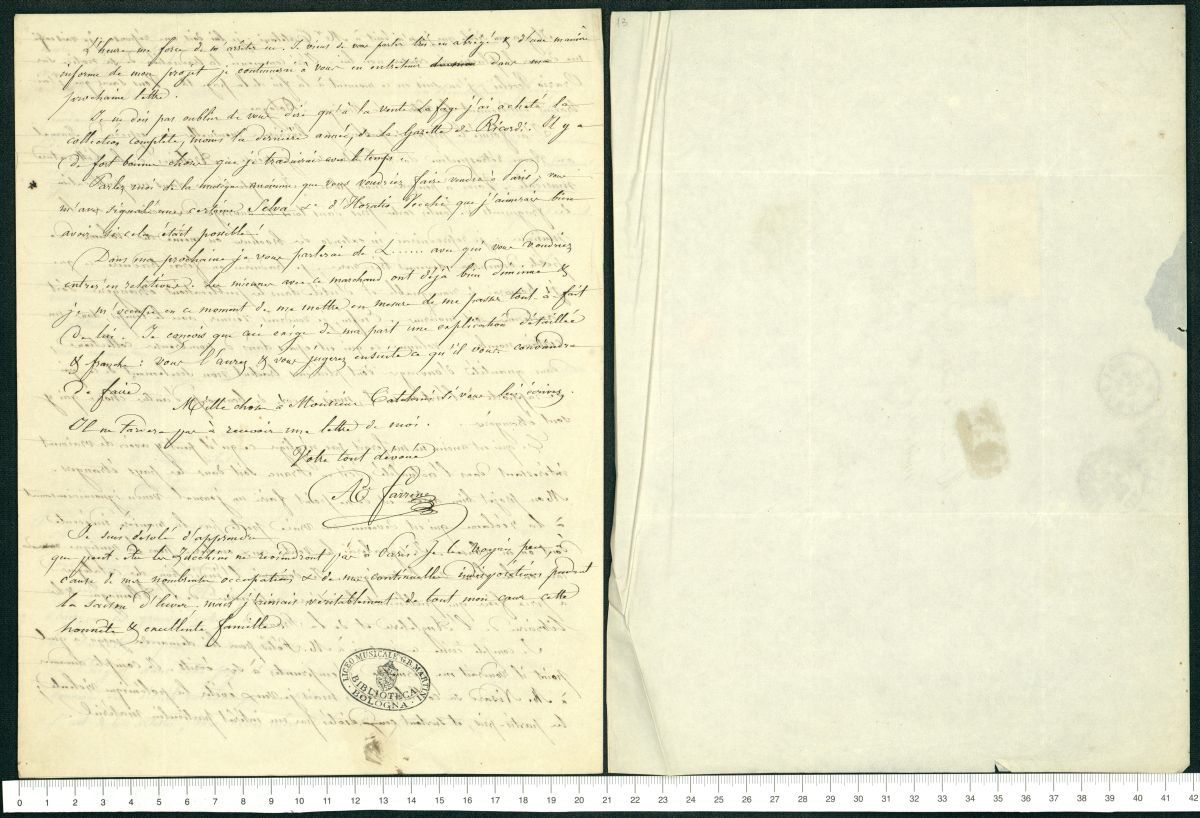 L'heure me force de m'arrêter ici. Je viens de vous parler très en abrégé & d'une manière
informe de mon projet je continuerai à vous en entretenir dans ma
prochaine lettre.
Je ne dois pas oublier de vous dire qu'à la vente Lafage j'ai acheté la
collection complète, moins la dernière année, de la Gazette de Ricordi. Il y a
de fort bonne chose que je traduirai avec le temps.
Parlez moi de la musique ancienne que vous voudriez faire vendre à Paris; vous
m'avez signalé une certaine Selva &c d'Horatio Vecchi que j'aimerais bien
avoir si cela était possible!
Dans ma prochaine je vous parlerai de L...... avec qui vous voudriez
entrer en relations: les miennes avec ce marchand ont déjà bien diminué &
je m'occupe en ce moment de me mettre en mesure de me passer tout-à-fait
de lui. Je conçois que ceci exige de ma part une explication détaillée
& franche: vous l'aurez & vous jugerez ensuite ce qu'il vous conviendra
de faire.
Mille choses à Monsieur Catelani si vous lui écrivez.
Il ne tardera pas à recevoir une lettre de moi.
Votre tout dévoué
Ad. Farrenc
Je suis désolé d'apprendre
que peut être les Zucchini ne reviendront pas à Paris. Je les voyais peu, à
cause de mes nombreuses occupations & de mes continuelles indispositions pendant
la saison d'hiver, mais j'aimais véritablement de tout mon cœur cette
honnête & excellente famille.
LICEO MUSICALE G.B. MARTINI
BIBLIOTECA
BOLOGNA
13
0 1 2 3 4 5 6 7 8 9 10 11 12 13 14 15 16 17 18 19 20 21 22 23 24 25 26 27 28 29 30 31 32 33 34 35 36 37 38 39 40 41 42